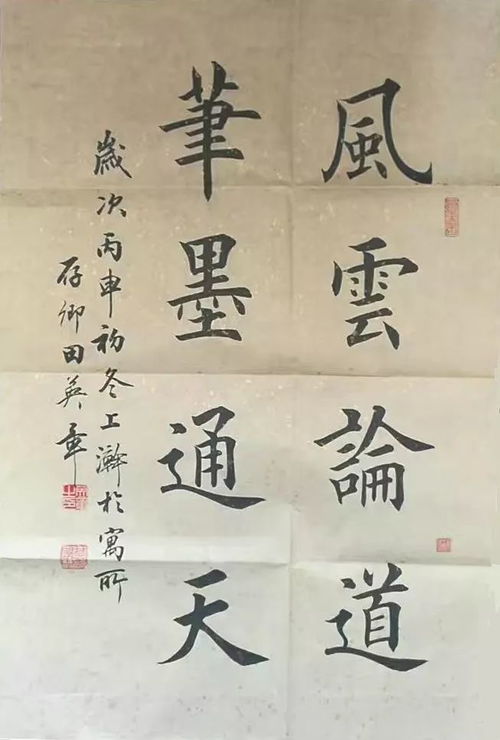 風雲論道
筆墨通天
歲次丙申初冬上澣於寓所
存卿田英章